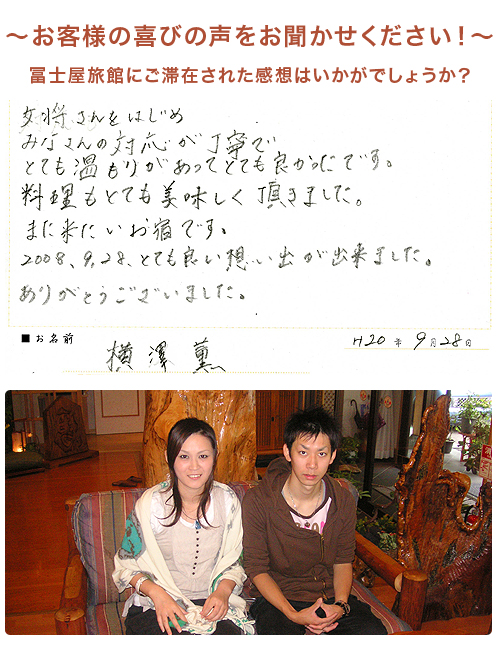 ～お客様の喜びの声をお聞かせください！～
冨士屋旅館にご滞在された感想はいかがでしょうか？
女将さんをはじめ
みなさんの対応が丁寧で
とても温もりがあってとても良かったです。
料理もとても美味しく頂きました。
また来たいお宿です。
2008、9、28、とても良い想い出が出来ました。
ありがとうございました。
■お名前 横澤薫 H20年9月28日